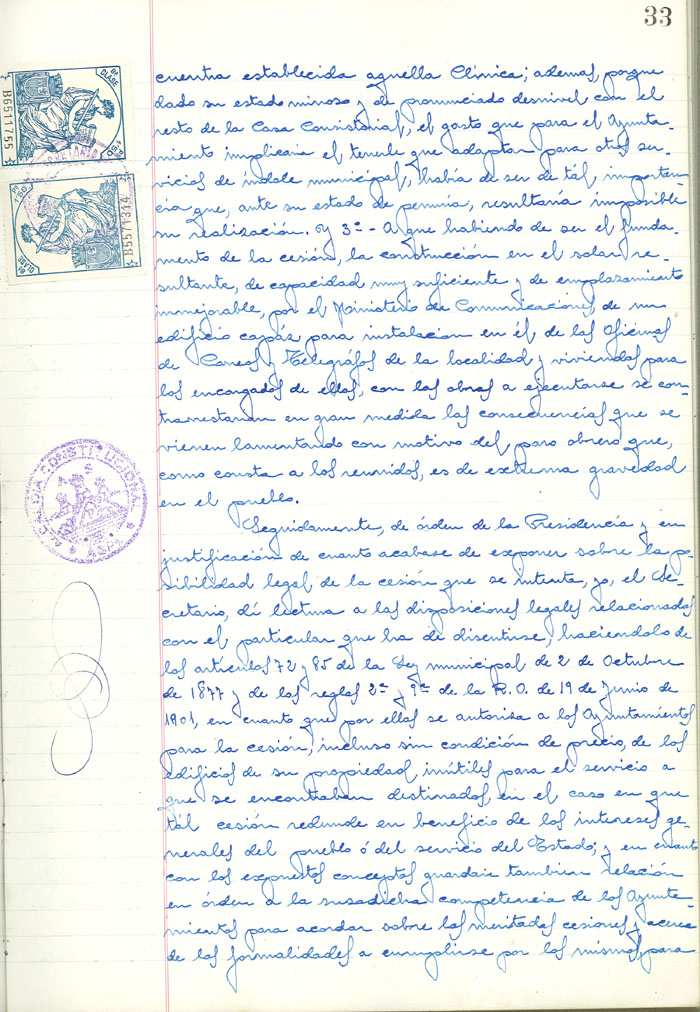 33
8ª CLASE
1'50 P
B6511755
8ª CLASE
B5571314
ALCALDIA CONSTITUCIONAL
cuentra establecida aquella Clínica; ademas, porque
dado su estado ruinoso y de pronunciado desnivel con el
resto de la Casa Consistorial, el gasto que para el Ayunta-
miento implicaria el tenerle que adaptar para otros ser-
vicios de índole municipal, había de ser de tál importan-
cia que, ante su estado de penuria, resultaría imposible
su realización. Y 3º - A que habiendo de ser el funda-
mento de la cesión, la construcción en el solar re-
sultante, de capacidad muy suficiente y de emplazamiento
inmejorable, por el Ministerio de Comunicaciones, de un
edificio capáz para instalacion en él de las Oficinas
de Correos y Telegráfos de la localidad y viviendas para
los encargados de ellas, con las obras a ejecutarse se con-
trarrestarian en gran medida las consecuencias que se
vienen lamentando con motivo del paro obrero que,
como consta a los reunidos, es de extrema gravedad
en el pueblo.
Seguidamente, de órden de la Presidencia y en
justificación de cuanto acabase de exponer sobre la po-
sibilidad legal de la cesión que se intenta, yo, el Se-
cretario, dí lectura a las disposiciones legales relacionadas
con el particular que ha de discutirse, haciendolo de
los artículos 72 y 85 de la Ley municipal de 2 de Octubre
de 1877 y de las reglas 2ª y 9ª de la R.O. de 19 de Junio de
1901, en cuanto que por ellas se autoriza a los Ayuntamientos
para la cesión, incluso sin condición de precio, de los
edificios de su propiedad inútiles para el servicio a
que se encontraban destinados, en el caso en que
tál cesión redunde en beneficio de los intereses ge-
nerales del pueblo ó del servicio del Estado; y en cuanto
con los expuestos conceptos guardan tambien relación
en órden a la susodicha competencia de los Ayunta-
mientos para acordar sobre las meritadas cesiones y acerca
de las formalidades a cumplirse por los mismos, para